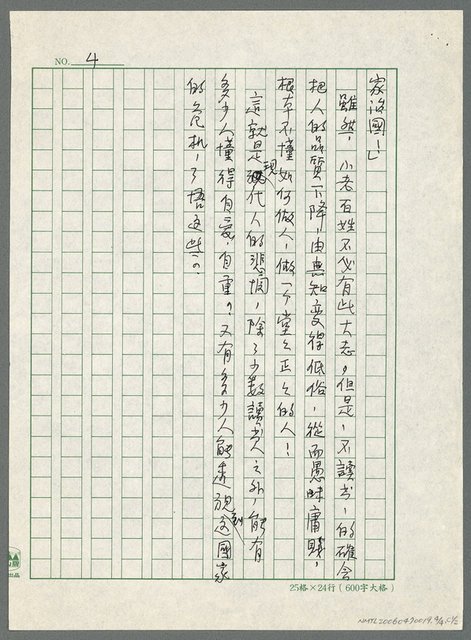 NO. 4
家治國！」
雖然，小老百姓不必有此大志。但是，不讀書，的確會
把人的品質下降，由無知變得低俗，從而愚昧庸賤，
根本不懂如何做人，做一个堂々正々的人！
這就是現代人的悲惘，除了少數讀書人之外，能有
多少人懂得自愛，自重的？又有多少人能透視到這國家
的危机，了悟這些的？
25格×24行（600字大格）
出品
NMTL20060490019, 4/4, 1/2